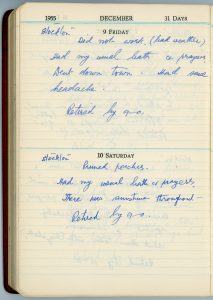 1955 DECEMBER 31 DAYS
9 FRIDAY
Stockton
Did not work. (bad weather)
Had my usual bath & prayers
Went down town. Had some
headache.
Retired by 9-0.
10 SATURDAY
Stockton
Pruned peaches.
Had my usual bath & prayers,
There was sunshine throughout-
Retired by 9-0.